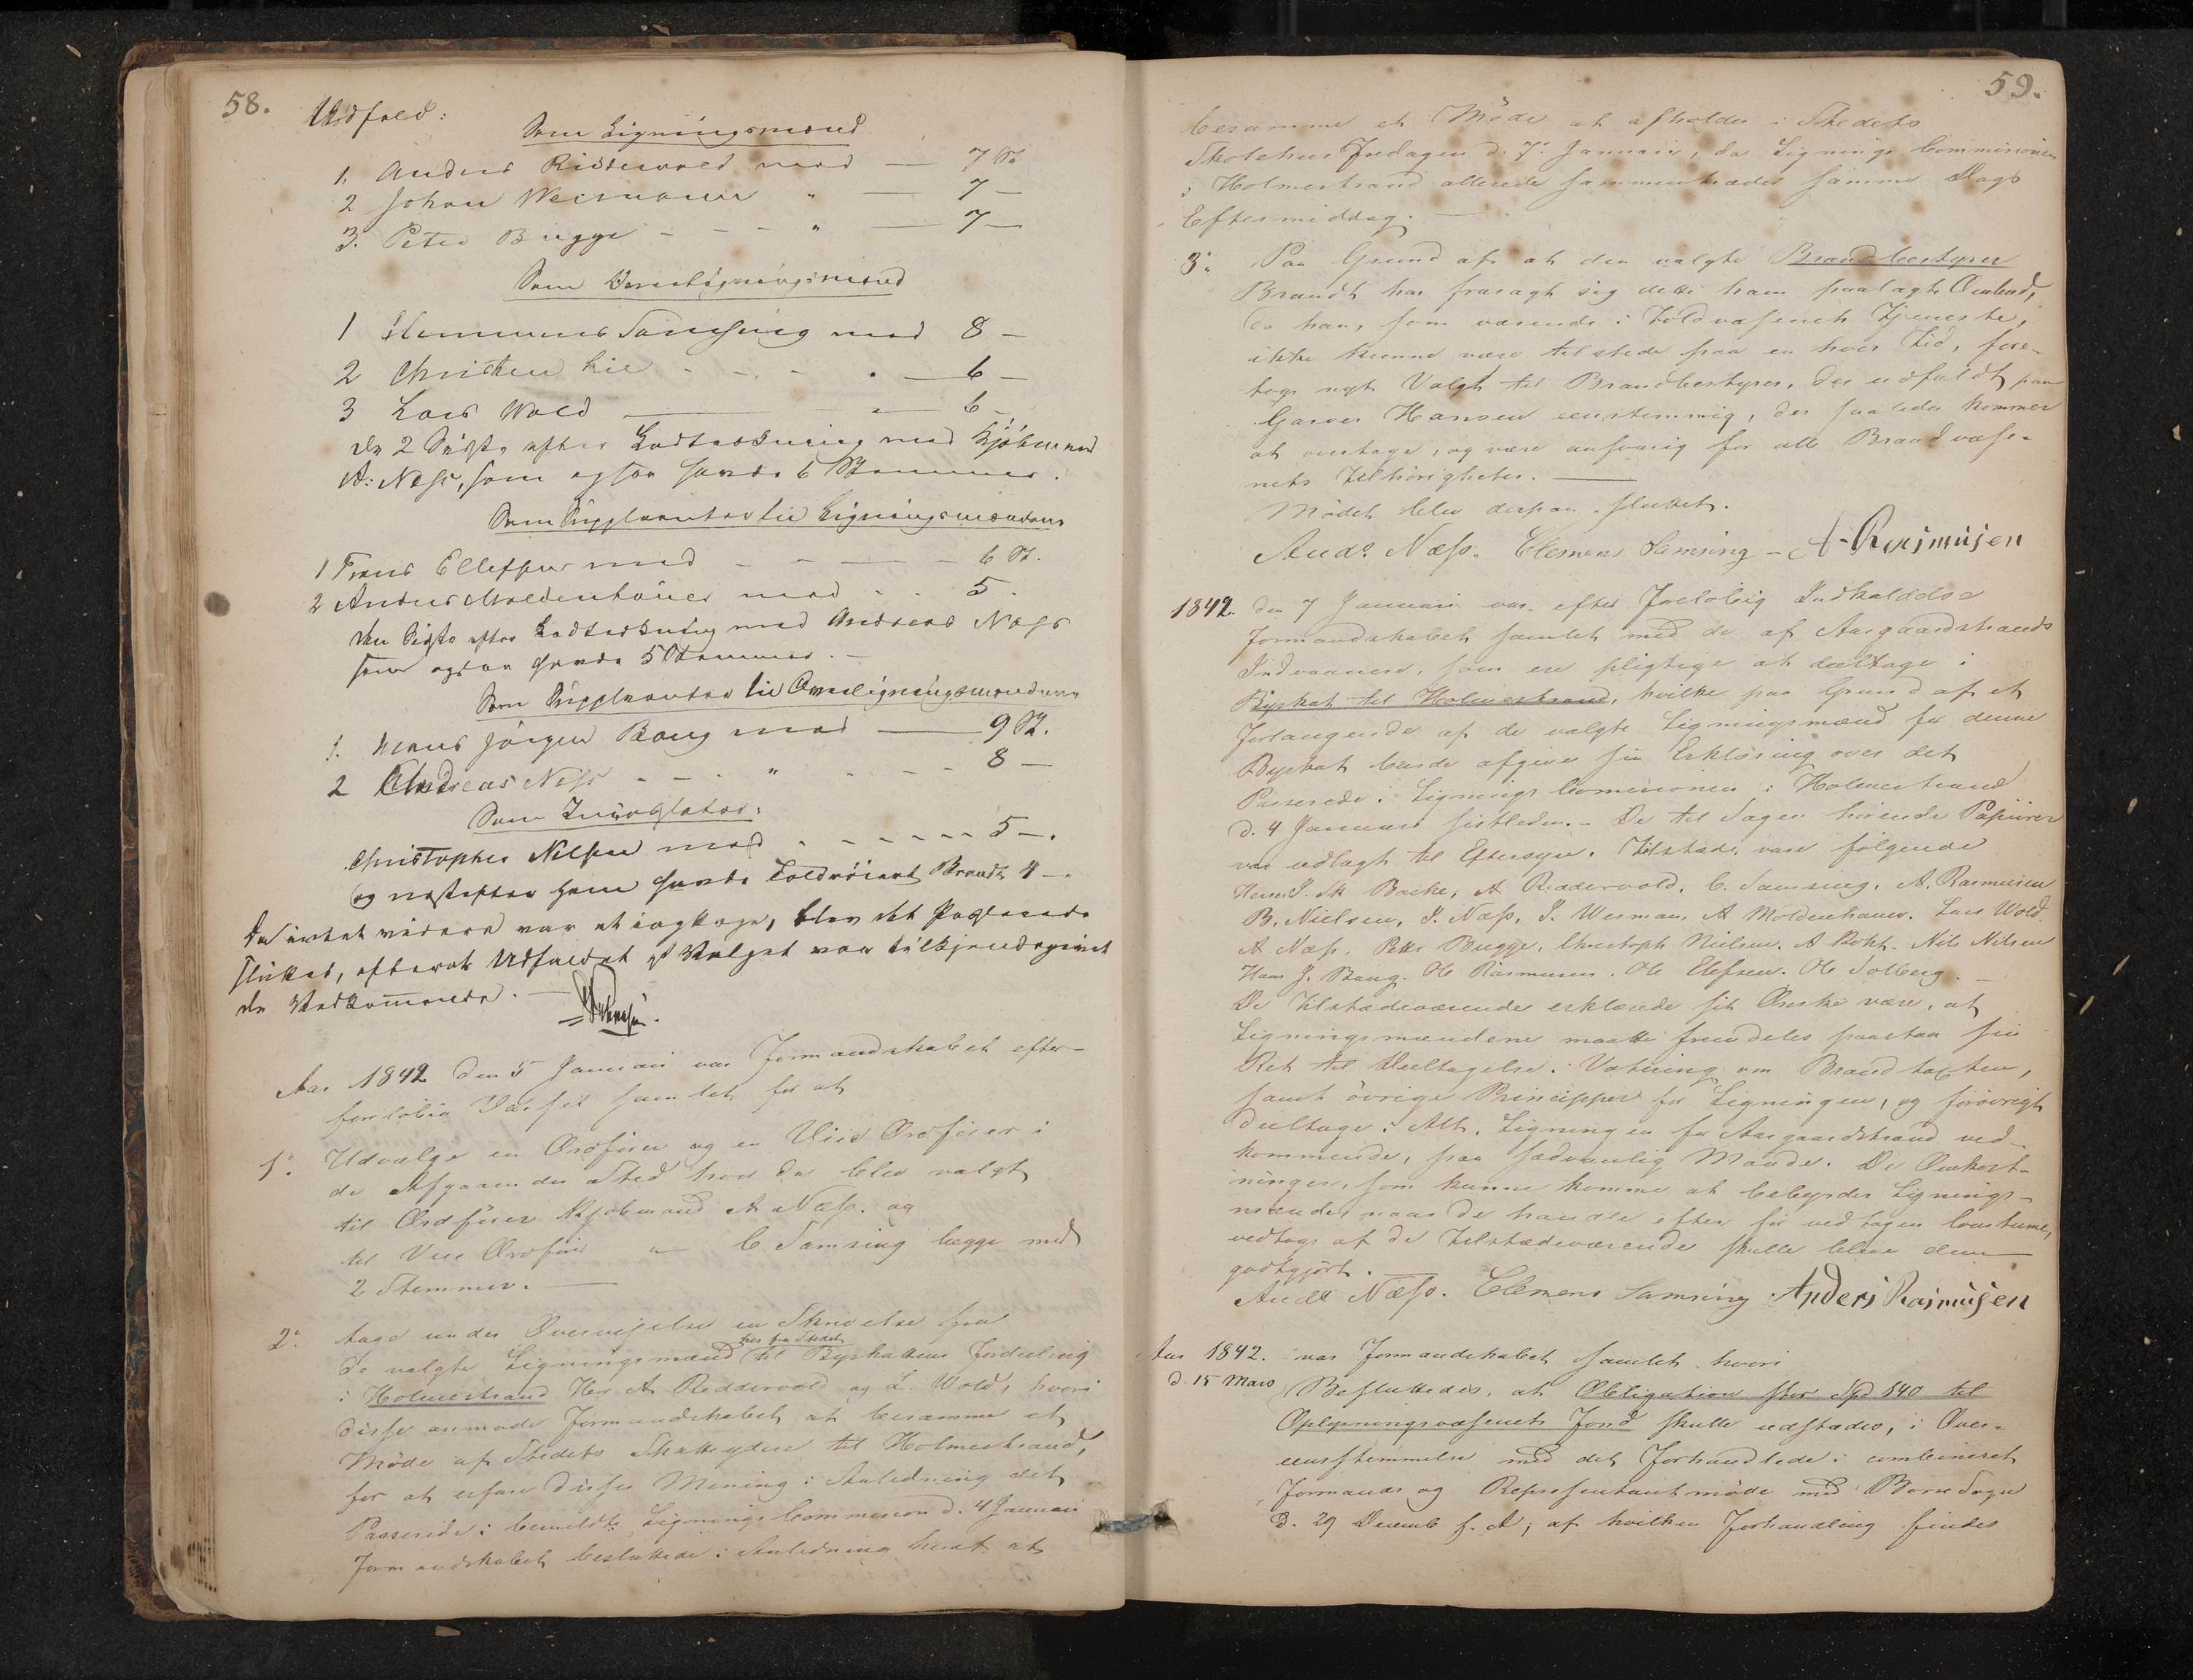 58.
Udfald:
Som Ligningsmænd
1. Anders Riddervold med — 7 St
2 Johan Weismann " — 7 —
3. Peter Bugge - - - " — 7 —
Som Overligningsmænd
1 Clemmens Samsing med 8 —
2 Christen Lie - - - " — 6 —
3 Lars Wold — " — 6 —
De 2 Sidste efter Lodtrækning med Kjøbmand
A: Næss, som ogsaa havde 6 Stemmer.
Som Suppleanter til Ligningsmændene
1 Frans Ellefsen med - - — - 6 St.
2 Anders Moldenhauer med - - 5.
den Sidste efter Lodtrækning med Andreas Næss
som ogsaa havde 5 Stemmer. —
Som Suppleanter til Overligningsmændene
1. Hans Jørgen Bang med — 9 St.
2 Andreas Næss - - - " - - - 8 —
Som
Christopher Nilsen med - - - - - 5 —.
og næstefter ham havde Toldrorert Brandt 4 —.
Da intet videre var at iagttage, blev det Passerede
sluttet, efterat Udfaldet af Valget var tilkjendegivet
de Vedkommende. —
Aar 1842 den 5 Januari var Formandskabet efter
foreløbig Varsel samlet for at
1o. Udvælge en Ordfører og en Vice Ordfører i
de Afgaaendes Sted hvor da blev valgt
til Ordfører Kjøbmand A Næss. og
til Vice Ordfører " C Samsing begge med
2 Stemmer. —
2o. tage under Overveielse en Skrivelse fra
her fra Stedet
de valgte Ligningsmænd til Byskattens Fordeling
i Holmestrand Herr A Reddervold og L. Wold, hvori
disse anmode Formandskabet at beramme et
Møde af Stedets Skatteydere til Holmestrand,
for at erfare disses Mening i Anledning det
Passerede i bemeldte Lignings Commission d. 4 Januari
Formandskabet besluttede i Anledning heraf at
59.
beramme et Møde at afholdes i Stedets
Skolehus Fredagen d. 7. Januari, da Lignings Commissionen
i Holmestrand allerede sammentræder samme Dags
Eftermiddag. —
3o. Paa Grund af at den valgte Brandbestyrer
Brandt har frasagt sig dette ham paalagte Ombud,
da han, som værende i Toldvæsenets Tjeneste,
ikke kunne være tilstede paa en hver Tid, fore-
togs nyt Valg til Brandbestyrer, der udfaldt paa
Garver Hansen eenstemmig, der saaledes kommer
at overtage, og være ansvarig for alle Brandvæse-
nets Tilhørigheder. —
Mødet blev derpaa sluttet.
Ands Næss. Clemens Samsing - A. Rasmusen
1842. den 7 Januari var efter Foreløbig Indkaldelse
Formandskabet samlet med de af Aasgaardstrands
Indvaanere, som ere pligtige at deeltage i
Byskat til Holmestrand, hvilke paa Grund af et
Forlangende af de valgte Ligningsmænd for denne
Byskat burde afgive sin Erklæring over det
Passerede i Lignings Commissionen i Holmestrand
d. 4 Januari sistleden. - De til Sagen hørende Papiirer
var udlagt til Eftersyn. Tilstæde vare følgende
Herrer J. Sk Backe, A Reddervold, C. Samsing, A. Rasmusen
B. Nielsen, J. Næss, J. Wesman, A Moldenhauer. Lars Wold.
A Næss. Petter Bugge, Christoph Nielsen. A Nils Nilsen
Hans J. Bang. Ole Rasmusen. Ole Elefsen. Ole Solberg. —
De Tilstædeværende erklærede sit Ønske være, at
Ligningsmændene maatte fremdeles paastaa sin
Ret til Deeltagelse i Votering om Brandtaxten,
samt øvrige Principper for Ligningen, og forøvrigt
deeltage i Alt, Ligningen for Aasgaardstrand ved-
kommende, paa sædvanlig Maade. De Omkost-
ninger, som kunne komme at bebyrdes Lignings-
mænder naar de handle efter før vedtagen Coustume,
vedtoges af de Tilstædeværende skulle blive dem
godtgjørt. —
Ands Næss. Clemens Samsing Anders Rasmusen
Aar 1842. var Formandskabet samlet hvori
d. 15 Mars Besluttedes, at Obligation stor Spd 840 til
Oplysningsvæsenets Fond skulle udstædes, i Over-
eensstemmelse med det Forhandlede i combineret
Formands og Repræsentantmøde med Borre Sogn
d. 29 Decemb f. A; af hvilken Forhandling findes